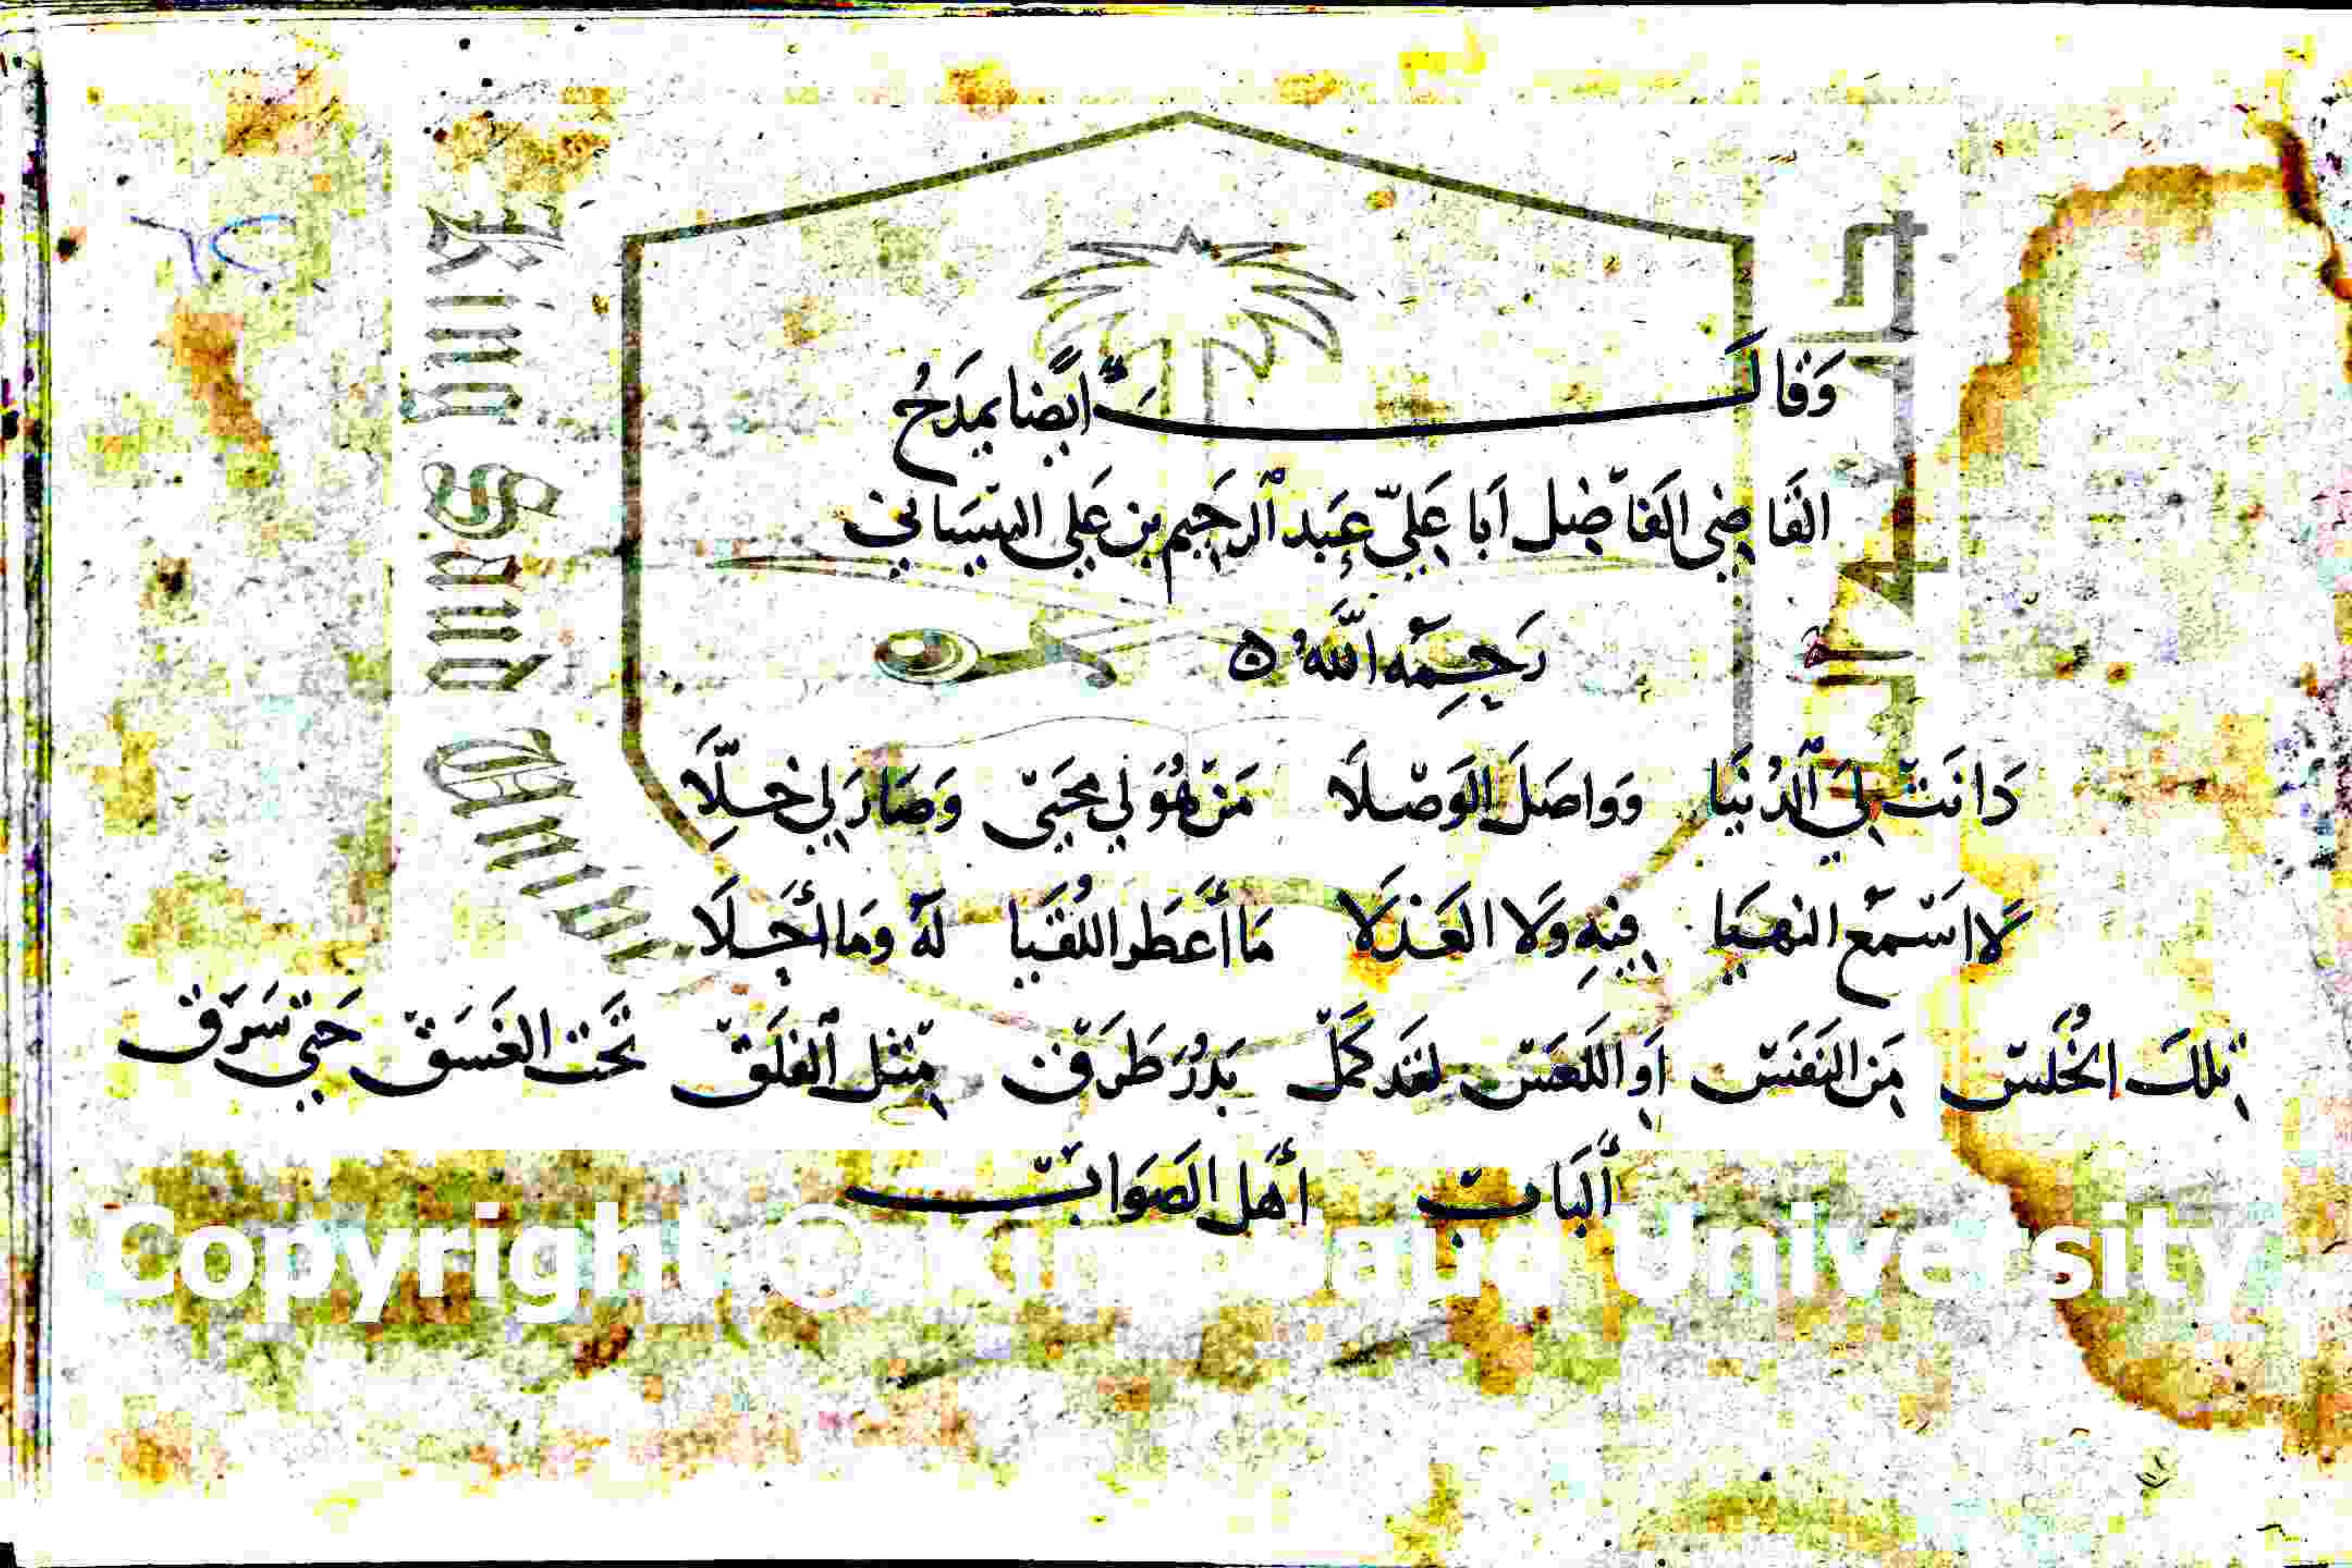 ٦٥
وَقَالَ أيضًا يمدَحُ
القَاضِى الفَاضِل أبا عَلِيّ عَبد الرحَيم بن عَلي البيسَاني
رَحِمَه اللَّه
دَانَتْ لِيَ الدُنيَا وَواصَلَ الوَصْلَا مَنْ هُوَ لي محيَىّ وَصَارَ لي خِلَّا
لَا اسْمَع النهيَا فيهِ وَلا العَذلَا مَا أعطَر اللُقيَا لَهُ ومَا أجلَا
تِلكَ الخُلَسْ مِنَ النَفَسْ أوِ اللَعَسْ لقد كَمَلْ بَدرٌ طَرَقْ مِثل الفلَقْ تَحتَ الغَسَقْ حَتى سَرَقْ
ألبَابْ أهل الصَوَابْ
Copyright © King Saud University
King Saud University